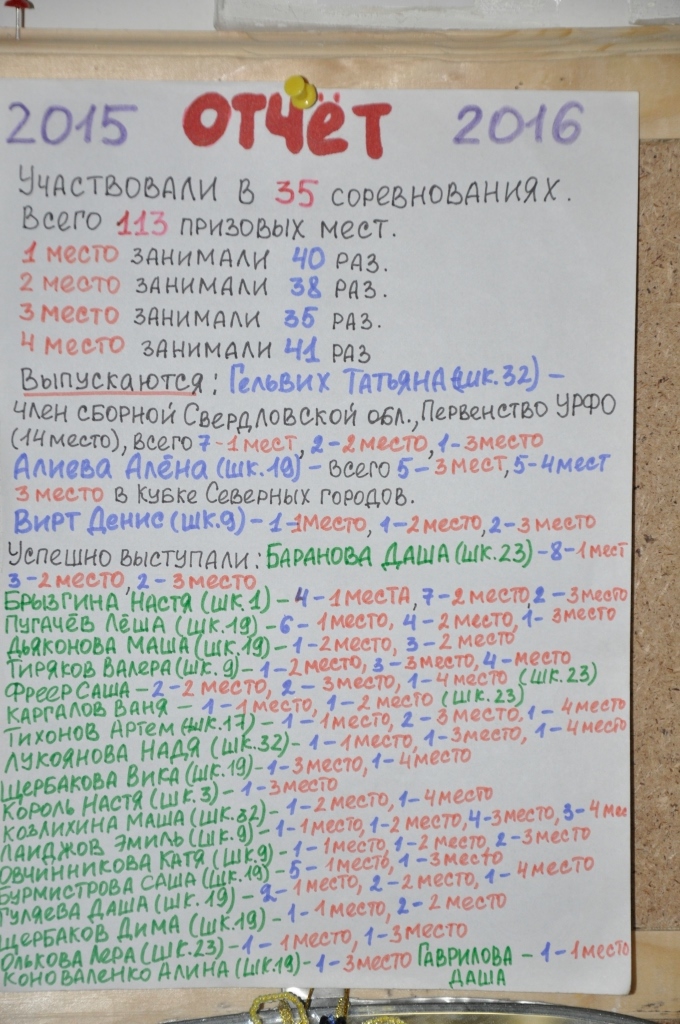 2015 ОТЧЁТ 2016
УЧАСТВОВАЛИ В 35 СОРЕВНОВАНИЯХ.
ВСЕГО 113 ПРИЗОВЫХ МЕСТ.
1 МЕСТО ЗАНИМАЛИ 40 РАЗ.
2 МЕСТО ЗАНИМАЛИ 38 РАЗ.
3 МЕСТО ЗАНИМАЛИ 35 РАЗ.
4 МЕСТО ЗАНИМАЛИ 41 РАЗ
ВЫПУСКАЮТСЯ: ГЕЛЬВИХ ТАТЬЯНА (ШК.32) –
ЧЛЕН СБОРНОЙ СВЕРДЛОВСКОЙ ОБЛ., ПЕРВЕНСТВО УРФО
(14 МЕСТО), ВСЕГО 7-1 МЕСТ, 2-2 МЕСТО, 1-3 МЕСТО
АЛИЕВА АЛЁНА (ШК.19) – ВСЕГО 5-3 МЕСТ, 5-4 МЕСТ
3 МЕСТО В КУБКЕ СЕВЕРНЫХ ГОРОДОВ.
ВИРТ ДЕНИС (ШК.9) – 1-1 МЕСТО, 1-2 МЕСТО, 2-3 МЕСТО
УСПЕШНО ВЫСТУПАЛИ: БАРАНОВА ДАША (ШК.23) – 8-1 МЕСТ
3-2 МЕСТО, 2-3 МЕСТО
БРЫЗГИНА НАСТЯ (ШК.1) – 4-1 МЕСТА, 7-2 МЕСТО, 2-3 МЕСТО
ПУГАЧЁВ ЛЁША (ШК.19) – 6-1 МЕСТО, 4-2 МЕСТО, 1-3 МЕСТО
ДЬЯКОНОВА МАША (ШК.19) – 1-2 МЕСТО, 3-2 МЕСТО
ТИРЯКОВ ВАЛЕРА (ШК.9) – 1-2 МЕСТО, 3-3 МЕСТО, 4-МЕСТО
ФРЕЕР САША – 2-2 МЕСТО, 2-3 МЕСТО, 1-4 МЕСТО (ШК.23)
КАРГАЛОВ ВАНЯ – 1-1 МЕСТО, 1-2 МЕСТО (ШК.23)
ТИХОНОВ АРТЕМ (ШК.17) – 1-1 МЕСТО, 2-3 МЕСТО, 1-4 МЕСТО
ЛУКОЯНОВА НАДЯ (ШК.32) – 1-1 МЕСТО, 1-3 МЕСТО, 1-4 МЕСТО
ЩЕРБАКОВА ВИКА (ШК.19) – 1-3 МЕСТО, 1-4 МЕСТО
КОРОЛЬ НАСТЯ (ШК.3) – 1-3 МЕСТО
КОЗЛИХИНА МАША (ШК.32) – 1-2 МЕСТО, 1-4 МЕСТО
ЛАИДЖОВ ЭМИЛЬ (ШК.9) – 1-1 МЕСТО, 1-2 МЕСТО, 4-3 МЕСТО, 3-4 МЕС
ОВЧИННИКОВА КАТЯ (ШК.9) – 1-1 МЕСТО, 1-2 МЕСТО, 2-3 МЕСТО
БУРМИСТРОВА САША (ШК.19) – 5-1 МЕСТО, 1-3 МЕСТО
ГУЛЯЕВА ДАША (ШК.19) – 2-1 МЕСТО, 2-2 МЕСТО, 1-4 МЕСТО
ЩЕРБАКОВ ДИМА (ШК.19) – 1-1 МЕСТО, 2-2 МЕСТО
ОЛЬКОВА ЛЕРА (ШК.23) – 1-1 МЕСТО, 1-3 МЕСТО
КОНОВАЛЕНКО АЛИНА (ШК.19) – 1-3 МЕСТО ГАВРИЛОВА – 1-1 МЕСТО
ДАША